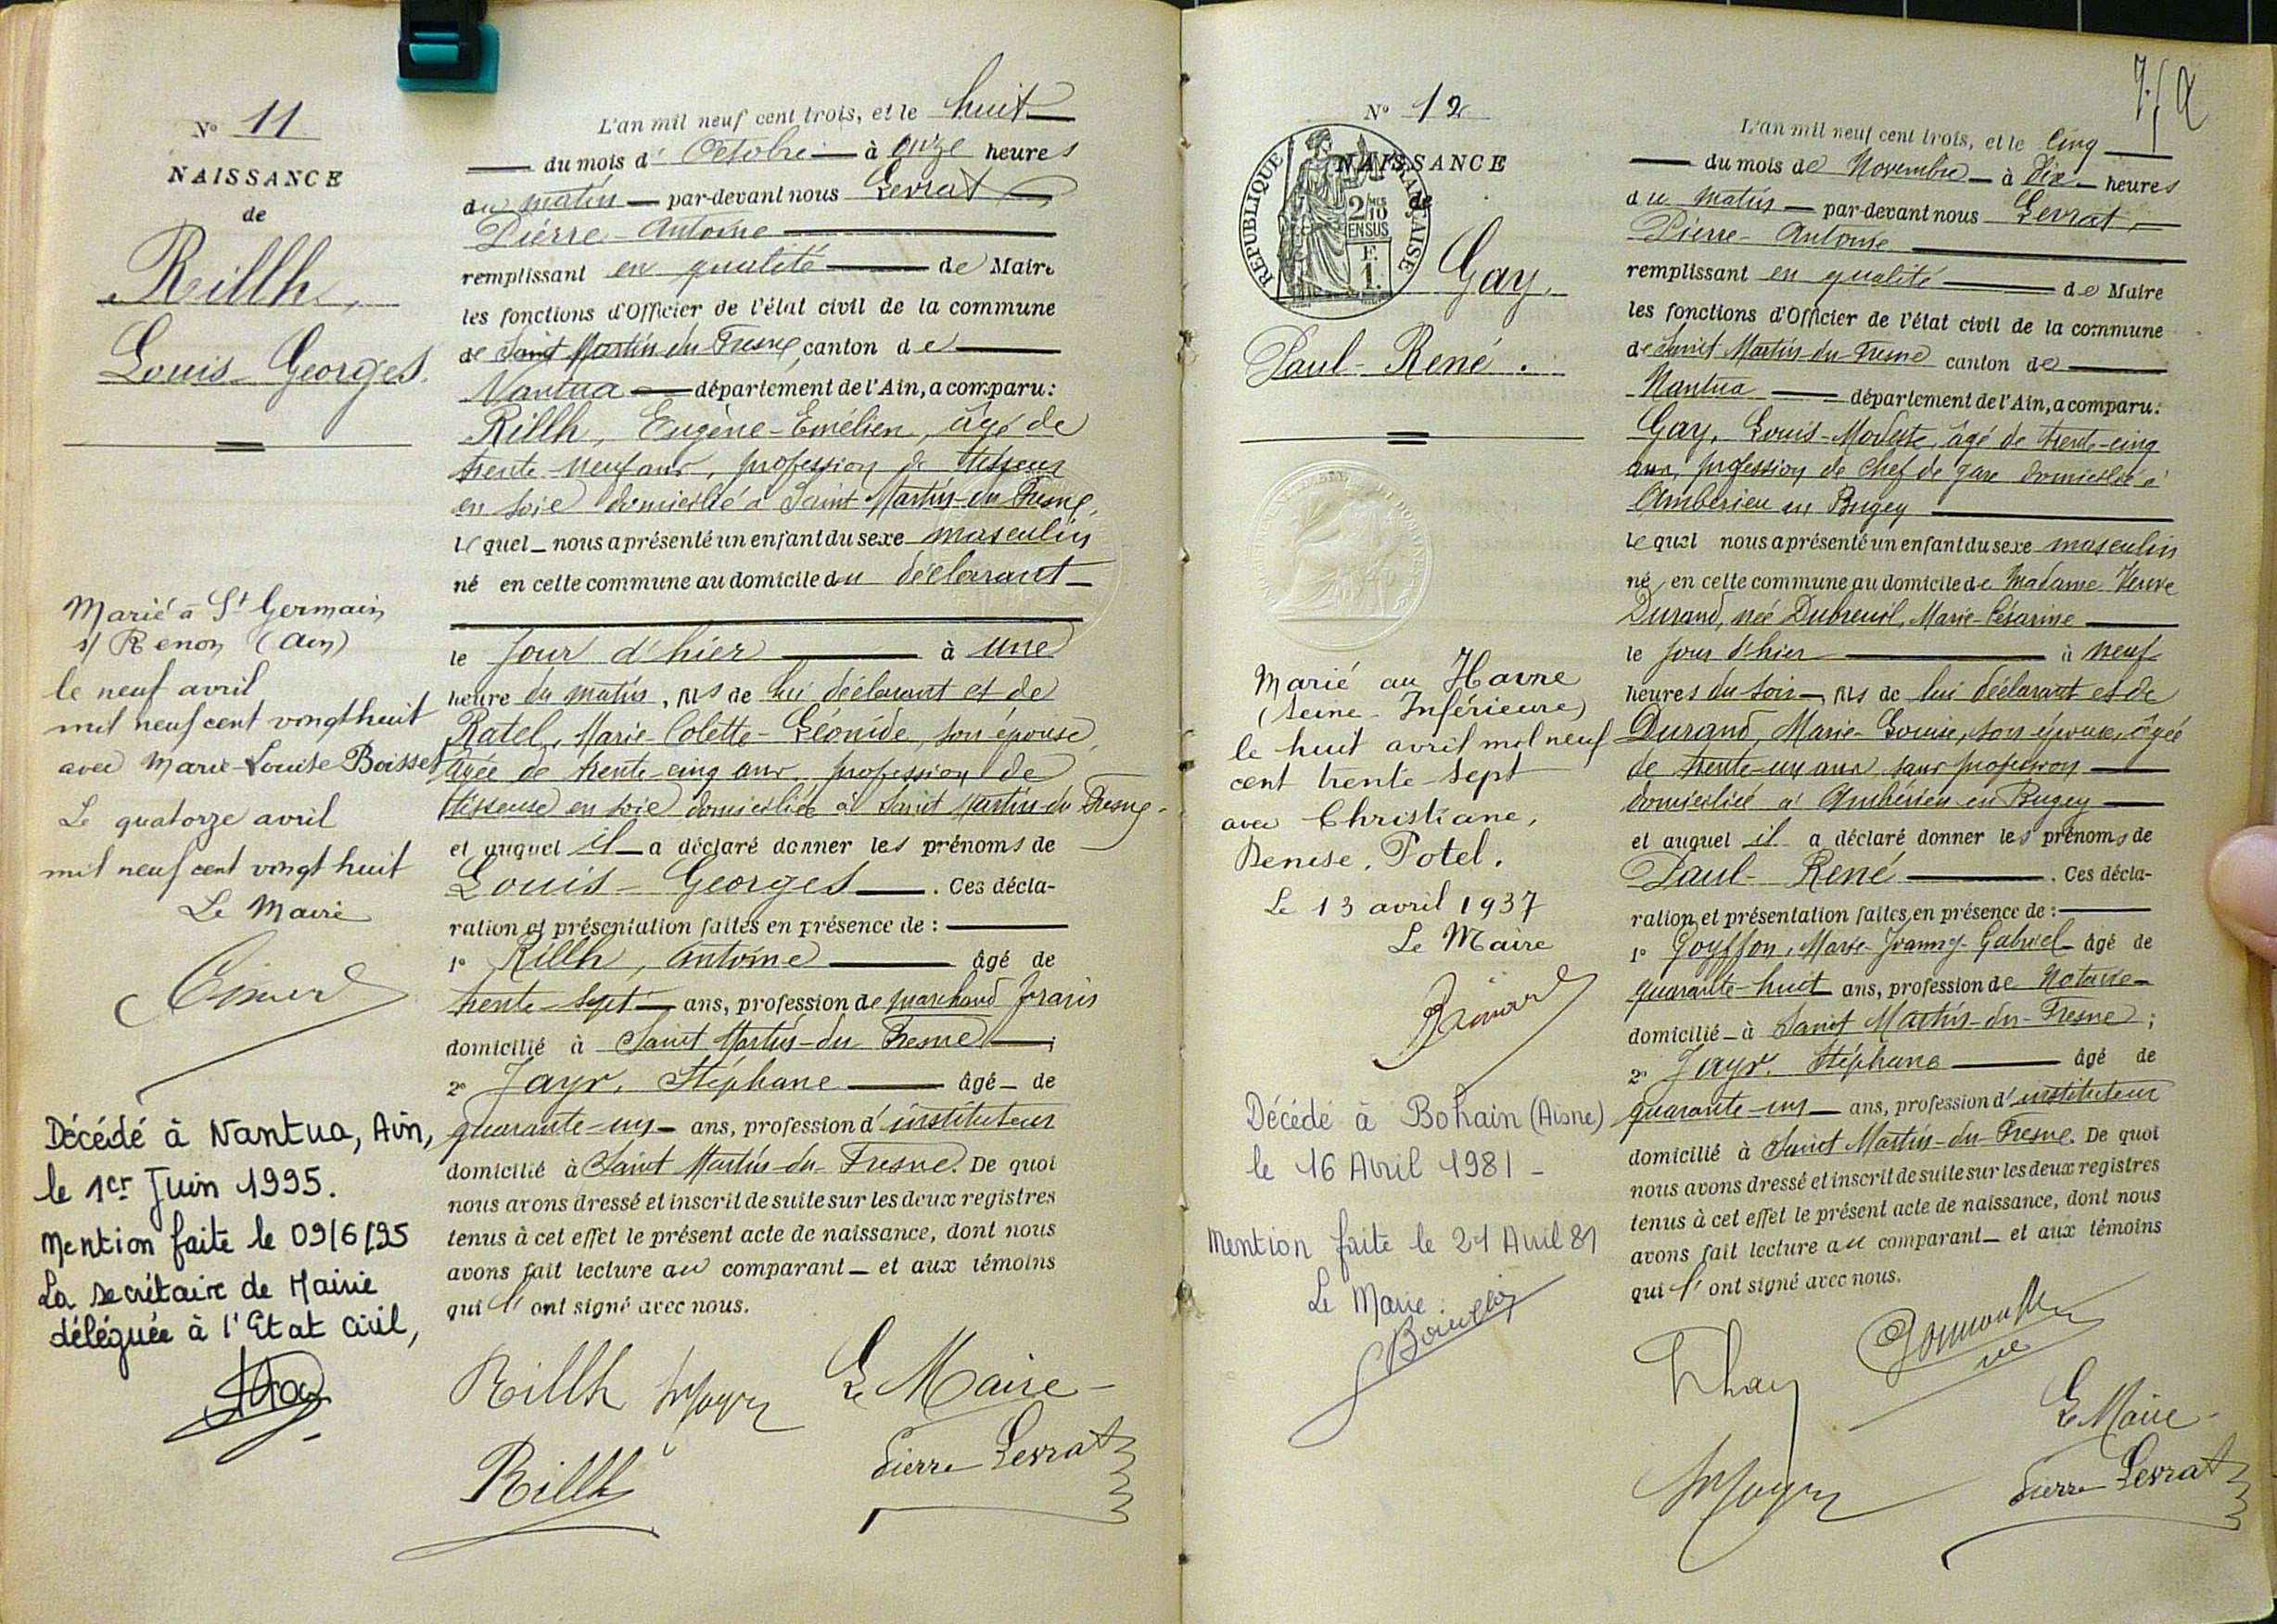 N° 11
NAISSANCE
de
Rillh,
Louis-Georges.
Marié à St Germain
s/ Renon (Ain)
le neuf avril
mil neuf cent vingt huit
avec Marie-Louise Boisset
Le quatorze avril
mil neuf cent vingt huit
Le Maire
Décédé à Nantua, Ain,
le 1er Juin 1995.
Mention faite le 09/6/95
La secrétaire de Mairie
déléguée à l'Etat civil,
L'an mil neuf cent trois, et le huit
du mois d'Octobre à onze heures
du matin par-devant nous Levrat
Pierre-Antoine
remplissant en qualité de Maire
les fonctions d'Officier de l'état civil de la commune
de Saint Martin du Fresne, canton de
Nantua département de l'Ain, a comparu:
Rillh, Eugène-Emélien, âgé de
trente neuf ans, profession de tisseur
en soie domicilié à Saint Martin-du Fresne,
lequel nous a présenté un enfant du sexe masculin
né en cette commune au domicile du déclarant
le jour d'hier à une
heure du matin, fils de lui déclarant et de
Ratel, Marie-Colette-Léonide, son épouse,
âgée de trente-cinq ans, profession de
tisseuse en soie domiciliée à Saint Martin-du Fresne.
et auquel il a déclaré donner les prénoms de
Louis-Georges. Ces décla-
ration et présentation faites en présence de :
1° Rillh, Antoine âgé de
trente-sept ans, profession de marchand forain
domicilié à Saint Martin-du Fresne;
2° Jayr, Stéphane âgé de
quarante-un ans, profession d'instituteur
domicilié à Saint Martin-du-Fresne. De quoi
nous avons dressé et inscrit de suite sur les deux registres
tenus à cet effet le présent acte de naissance, dont nous
avons fait lecture au comparant et aux témoins
qui l'ont signé avec nous.
Rillh Jayr Le Maire
Rillh Pierre Levrat
N° 12
NAISSANCE
de
RÉPUBLIQUE FRANÇAISE
2/10 EN SUS
F. 1.
Gay,
Paul-René.
Marié au Havre
(Seine-Inférieure)
le huit avril mil neuf
cent trente sept
avec Christiane,
Denise, Potel.
Le 13 avril 1937
Le Maire
Décédé à Bohain (Aisne)
le 16 Avril 1981 -
Mention faite le 21 Avril 81
Le Maire
L'an mil neuf cent trois, et le cinq
du mois de Novembre à Dix heures
du matin par-devant nous Levrat,
Pierre-Antoine
remplissant en qualité de Maire
les fonctions d'Officier de l'état civil de la commune
de Saint Martin-du-Fresne canton de
Nantua département de l'Ain, a comparu:
Gay, Louis-Modeste, âgé de trente-cinq
ans, profession de Chef de gare domicilié à
Ambérieu en Bugey
lequel nous a présenté un enfant du sexe masculin
né, en cette commune au domicile de Madame Veuve
Durand, née Dubreuil, Marie-Césarine
le jour d'hier à neuf
heures du soir, fils de lui déclarant et de
Durand, Marie-Louise, son épouse, âgée
de trente-un ans, sans profession
domiciliée à Ambérieu-en Bugey
et auquel il a déclaré donner les prénoms de
Paul-René. Ces décla-
ration et présentation faites en présence de :
1° Goyffon, Marie-Joanny-Gabriel âgé de
quarante-huit ans, profession de Notaire
domicilié à Saint Martin-du-Fresne;
2° Jayr, Stéphane âgé de
quarante-un ans, profession d'instituteur
domicilié à Saint Martin-du-Fresne. De quoi
nous avons dressé et inscrit de suite sur les deux registres
tenus à cet effet le présent acte de naissance, dont nous
avons fait lecture au comparant et aux témoins
qui l'ont signé avec nous.
Le Maire
Jayr Pierre Levrat